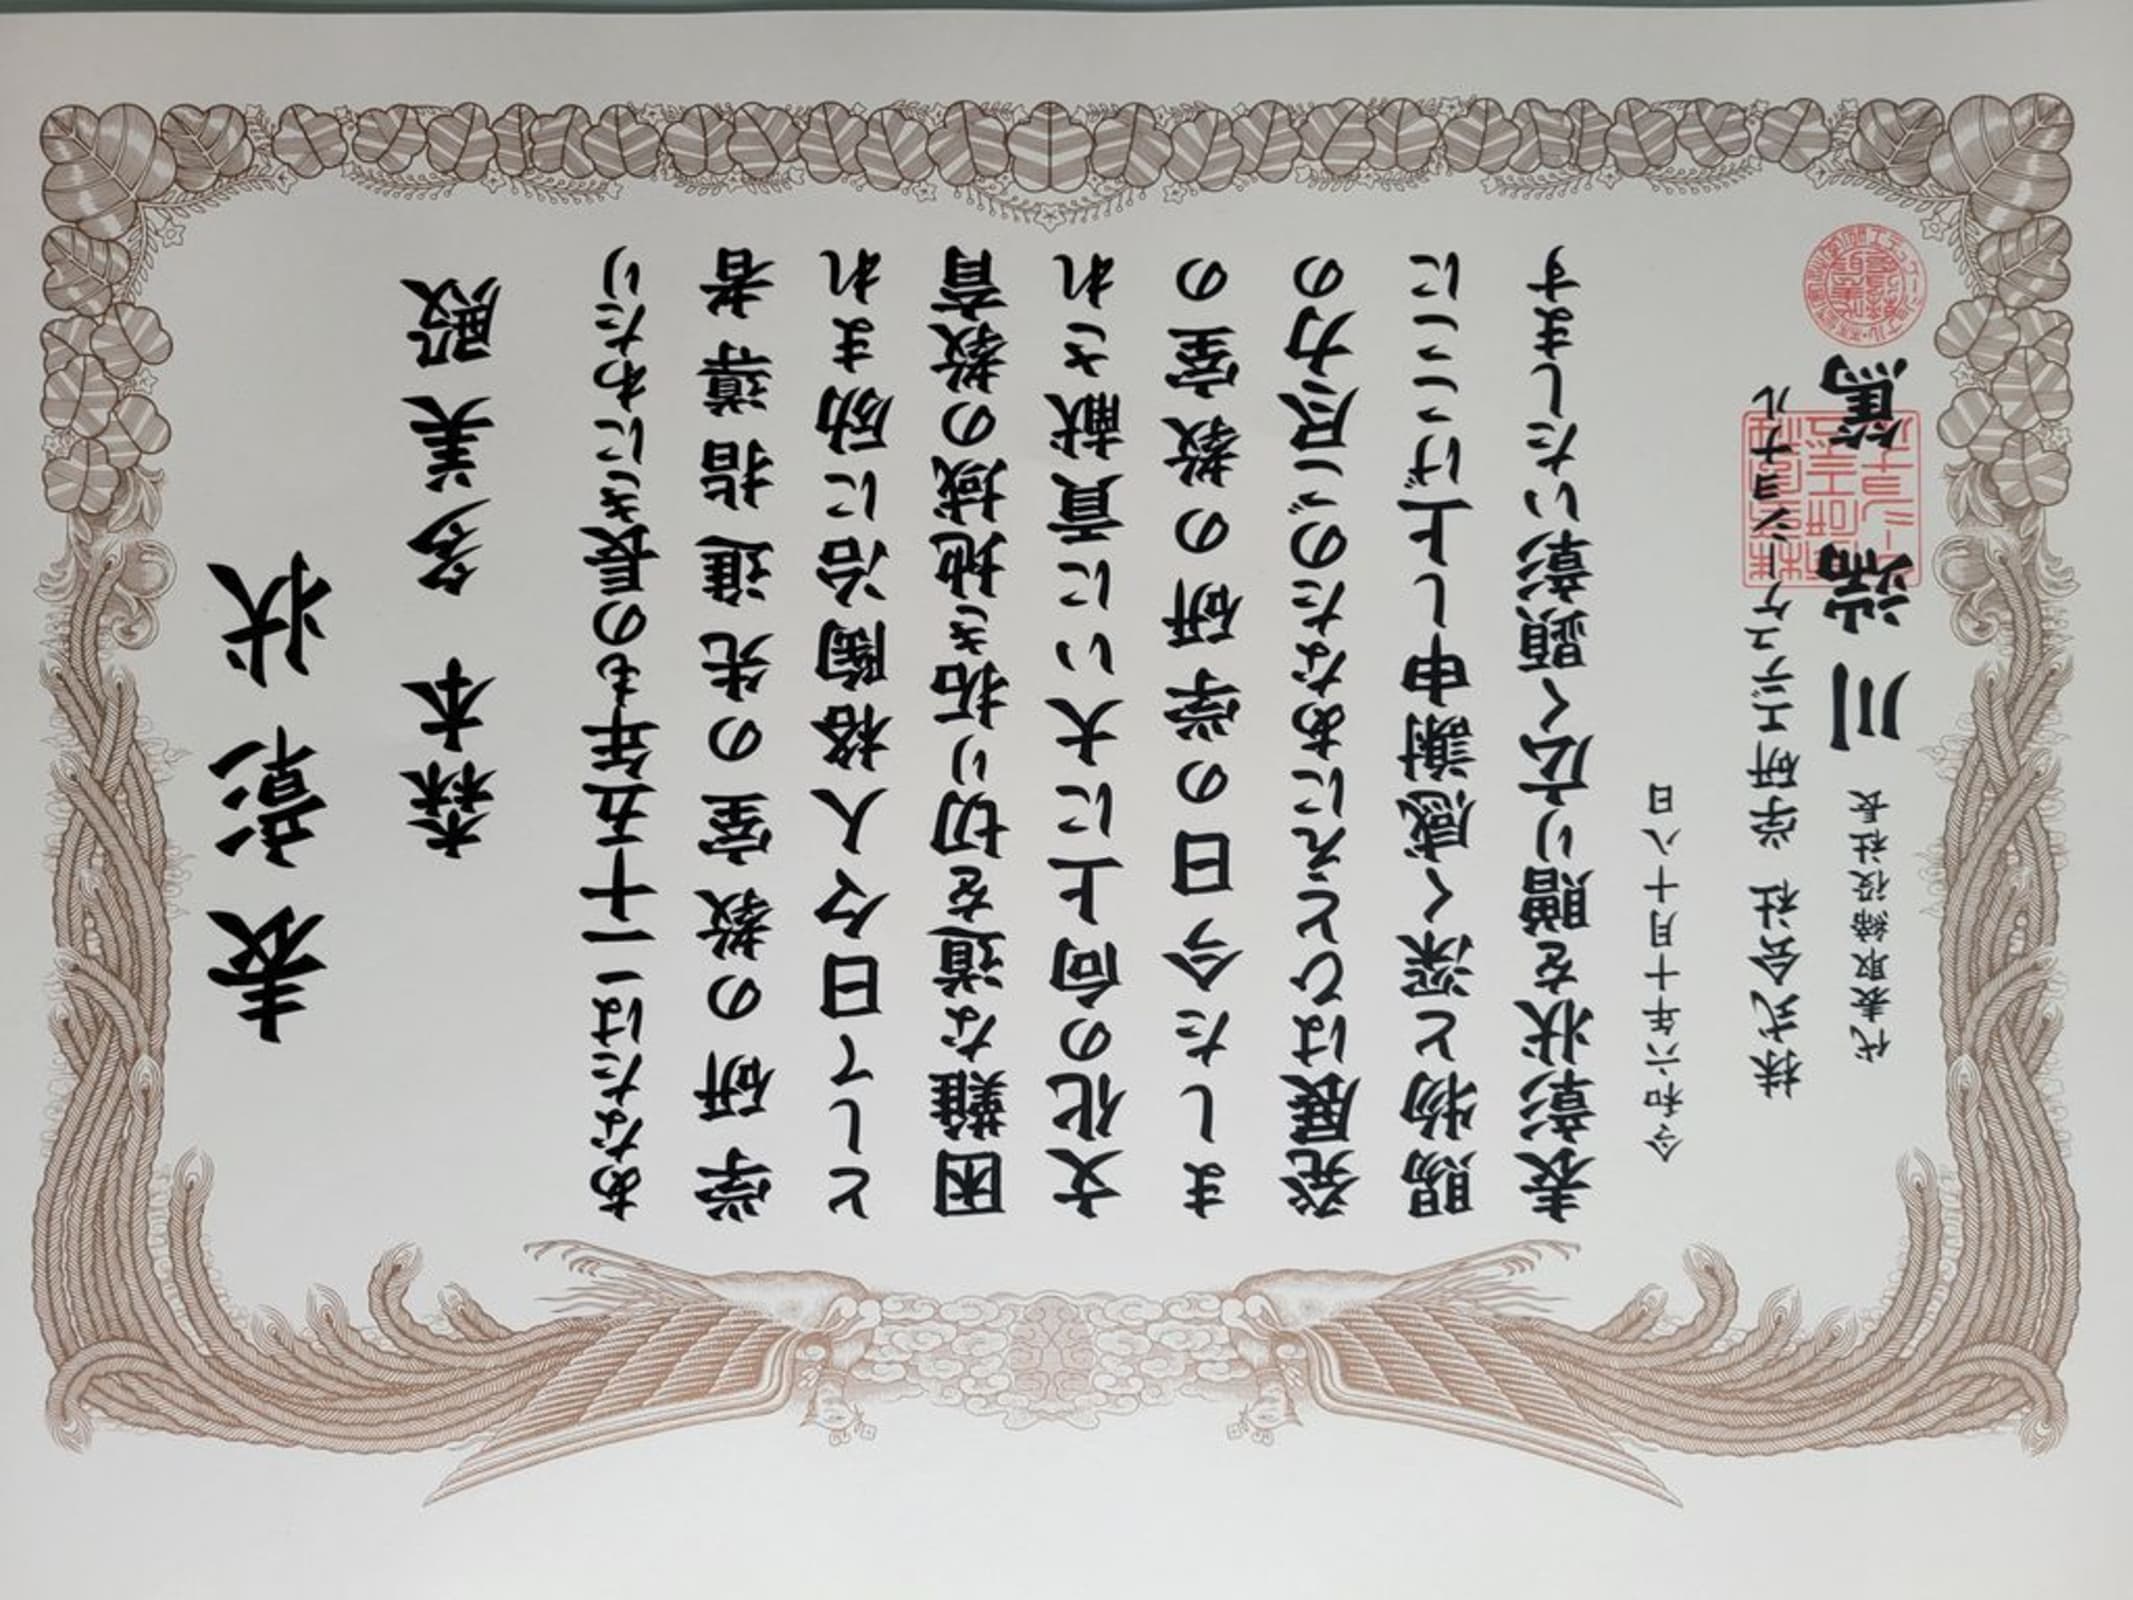 表彰状
森本 多美 殿
あなたは二十五年もの長きにわたり
学研の教室の先進指導者
として日々人格陶冶に励まれ
困難な道を切り拓き地域の教育
文化の向上に大いに貢献され
ました今日の学研の教室の
発展はひとえにあなたのご尽力の
賜物と深く感謝申し上げここに
表彰状を贈り広く顕彰いたします
令和六年十月十八日
株式会社 学研エデュケーショナル
代表取締役社長 川端 篤